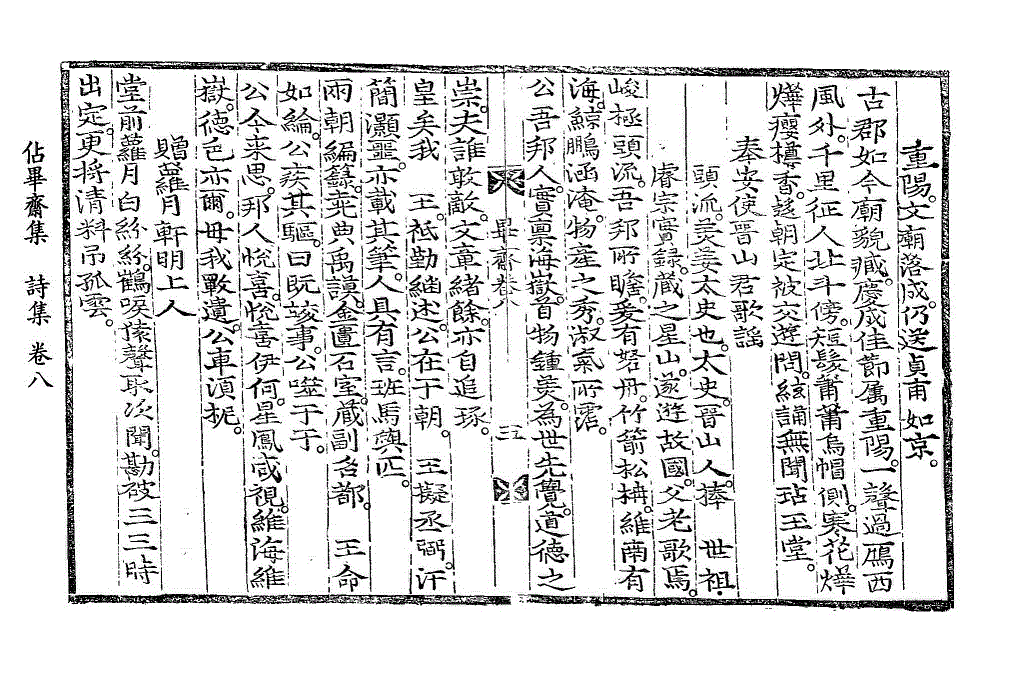 重陽。文廟落成。仍送貞甫 如京。
古郡如今廟貌臧。慶成佳節属重陽。一聲過鴈西
風外。千里征人北斗傍。短髮蕭蕭烏帽側。寒花燁
燁癭樽香。趍朝定被交遊問。絃誦無聞玷玉堂。
奉安使晋山君歌謡
頭流。美姜太史也。太史。晋山人。捧 世祖.
睿宗實録。蔵之星山。遂遊故國。父老歌焉。
峻極頭流。吾邦所瞻。爰有努冊。竹箭松枏。維南有
海。鯨鵬涵淹。物産之秀。淑氣所霑。
公吾邦人。實禀海嶽。首物鍾美。為世先覺。道德之
崇。夫誰敢敵。文章緒餘。亦自追琢。
皇矣我 王。祗勤継述。公在于朝。 王擬丞弼。汗
簡灝噩。亦載其筆。人具有言。班馬與匹。
兩朝編錄。尭典禹謨。金匱石室。蔵副名都。 王命
如綸。公疾其驅。曰既竣事。公噬于于。
公今来思。邦人悅喜。悅喜伊何。星鳳咸視。維海維
嶽。德色亦爾。毋我斁遺。公車湏柅。
贈蘿月軒明上人
堂前蘿月白紛紛。鶴唳猿聲取次聞。勘破三三時
出定。更將清料吊孤雲。
畢齋卷八 三
佔畢齋集 詩集 卷八